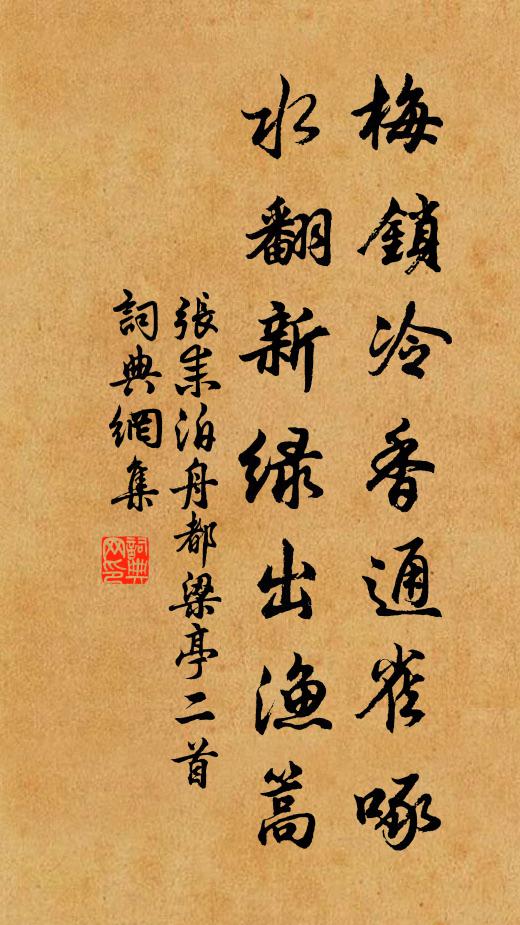 梅鎖冷香通雀啄
水翻新綠出漁篙
張耒泊舟都梁亭二首
詞典網集
詞典网印